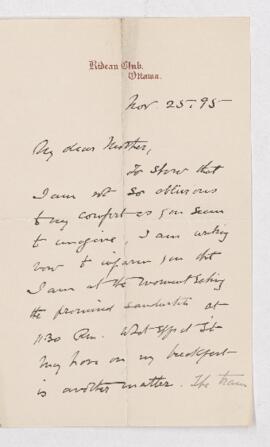 Rideau Club,
Ottawa.
Nov. 25. 95
My dear Mother,
To show that
I am not so oblivious
to my comfort as you seem
to imagine, I am writing
now to inform you that
I am at the moment eating
the promised sandwich at
11:30 P.m. What effect it
may have on my breakfast
is another matter. The train